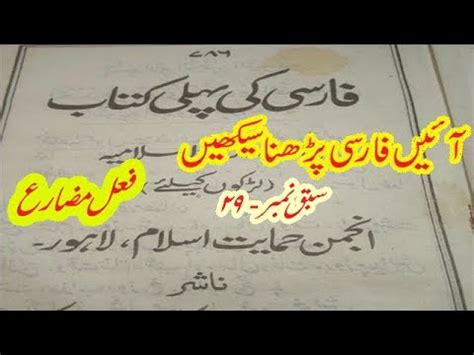 ۷۸۶
فارسی کی پہلی کتاب
آئیں فارسی پڑھنا سیکھیں
اسلامیہ
فعل مضارع
(لڑکوں کیلئے)
سبق نمبر - ۲۹
انجمن حمایت اسلام، لاہور۔
ناشر